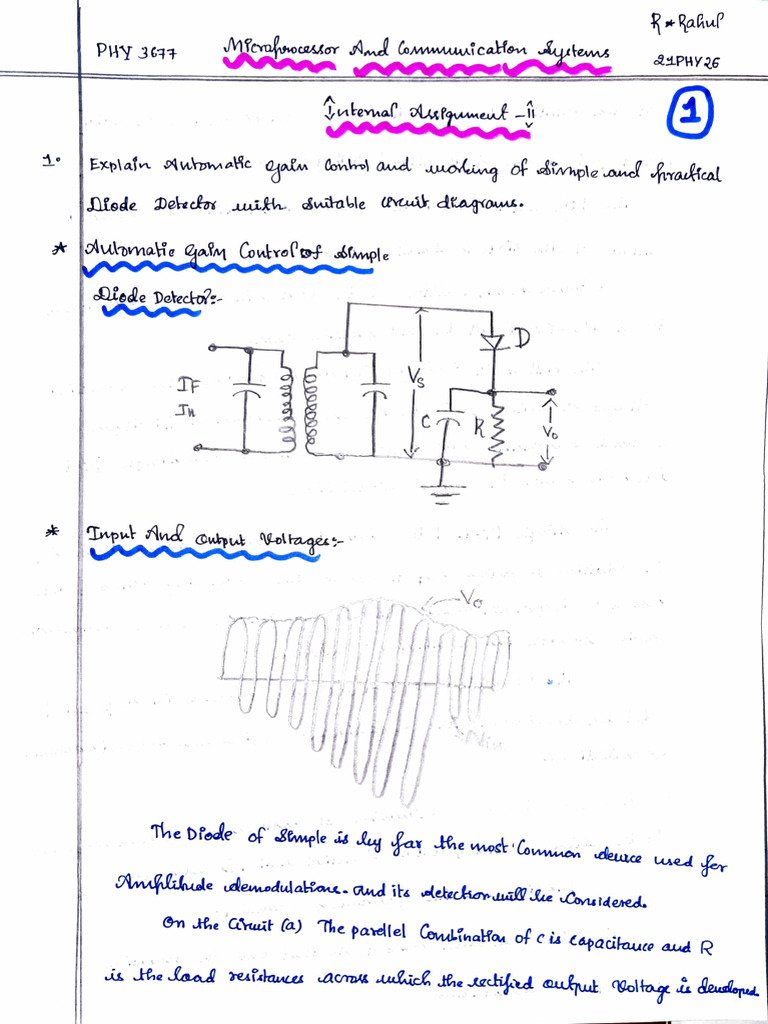 R * Rahul
PHY 3677 Microprocessor And Communication Systems
21PHY26
Internal Assignment -II
1
1. Explain Automatic Gain Control and working of Simple and Practical
Diode Detector with suitable circuit diagrams.
* Automatic Gain Control of Simple
Diode Detector:-
D
IF
In
Vs
C
R
Vo
* Input And Output Voltages:-
Vo
The Diode of Simple is by far the most Common device used for
Amplitude demodulations. and its detection will be Considered.
On the Circuit (a) The parellel Combination of C is Capacitance and R
is the load resistances across which the rectified output Voltage is developed